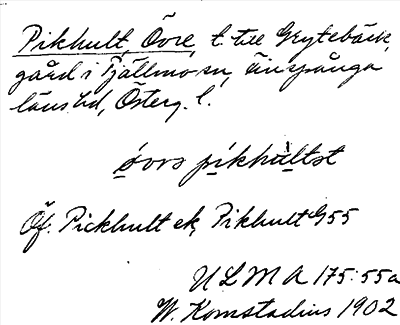 Pikhult, Övre, t. till Grytebäck,
gård i Tjällmo sn, Finspånga
läns hd, Österg. l.
övrs píkhultst
Öf. Pickhult ek, Pikhult G55
ULMA 175:55a
W. Komstadius 1902